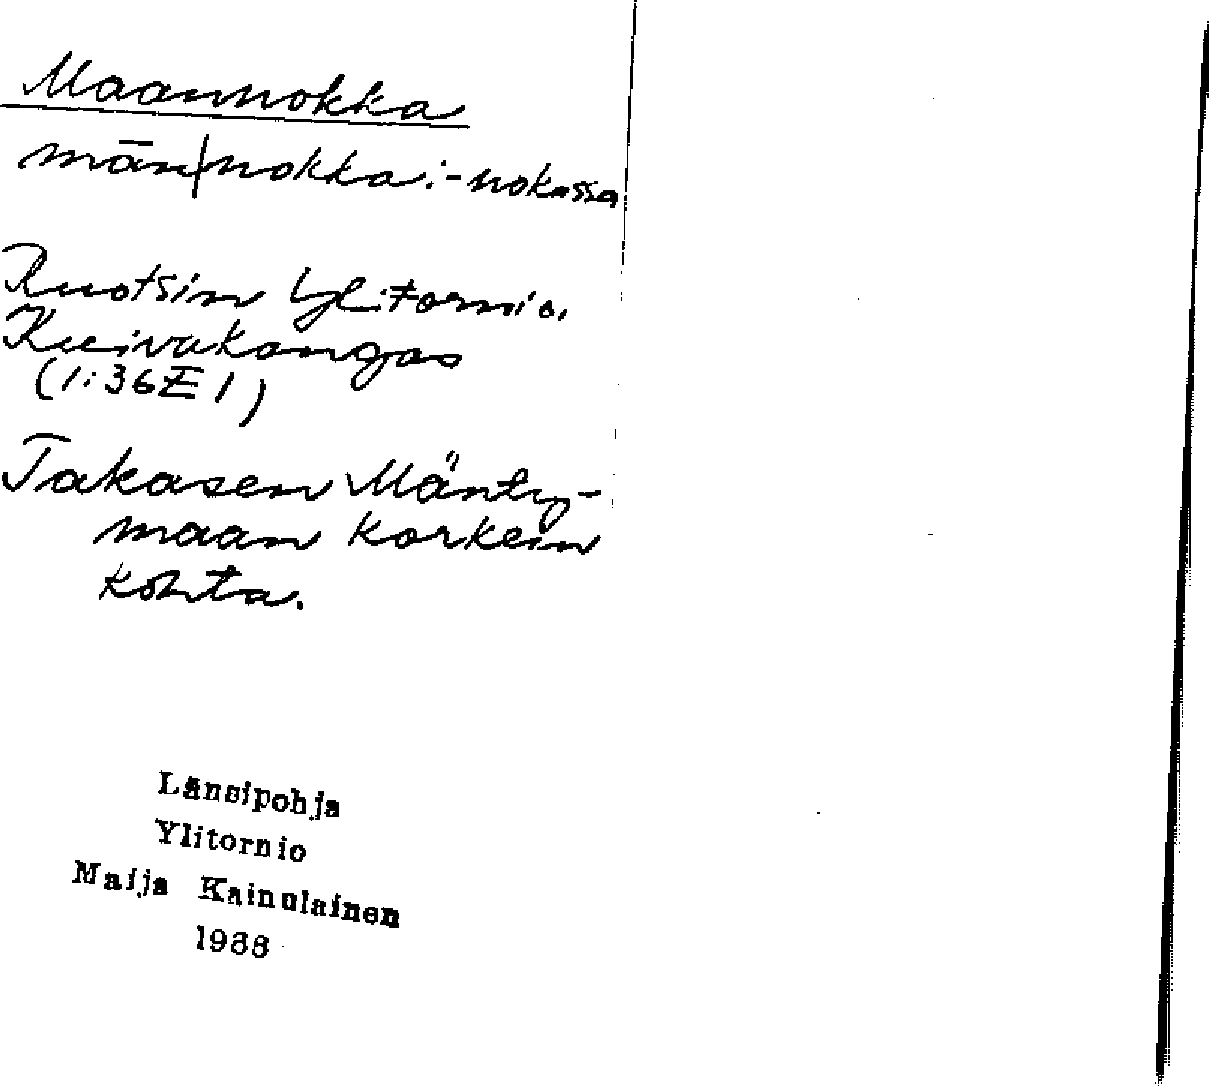 Maannokka
mān|nokka: -nokassa
Ruotsin Ylitornio,
Kuivakangas
(1:36E1)
Takasen Mänty-
maan korkein
kohta.
Länsipohja
Ylitornio
Maija Kainulainen
1966